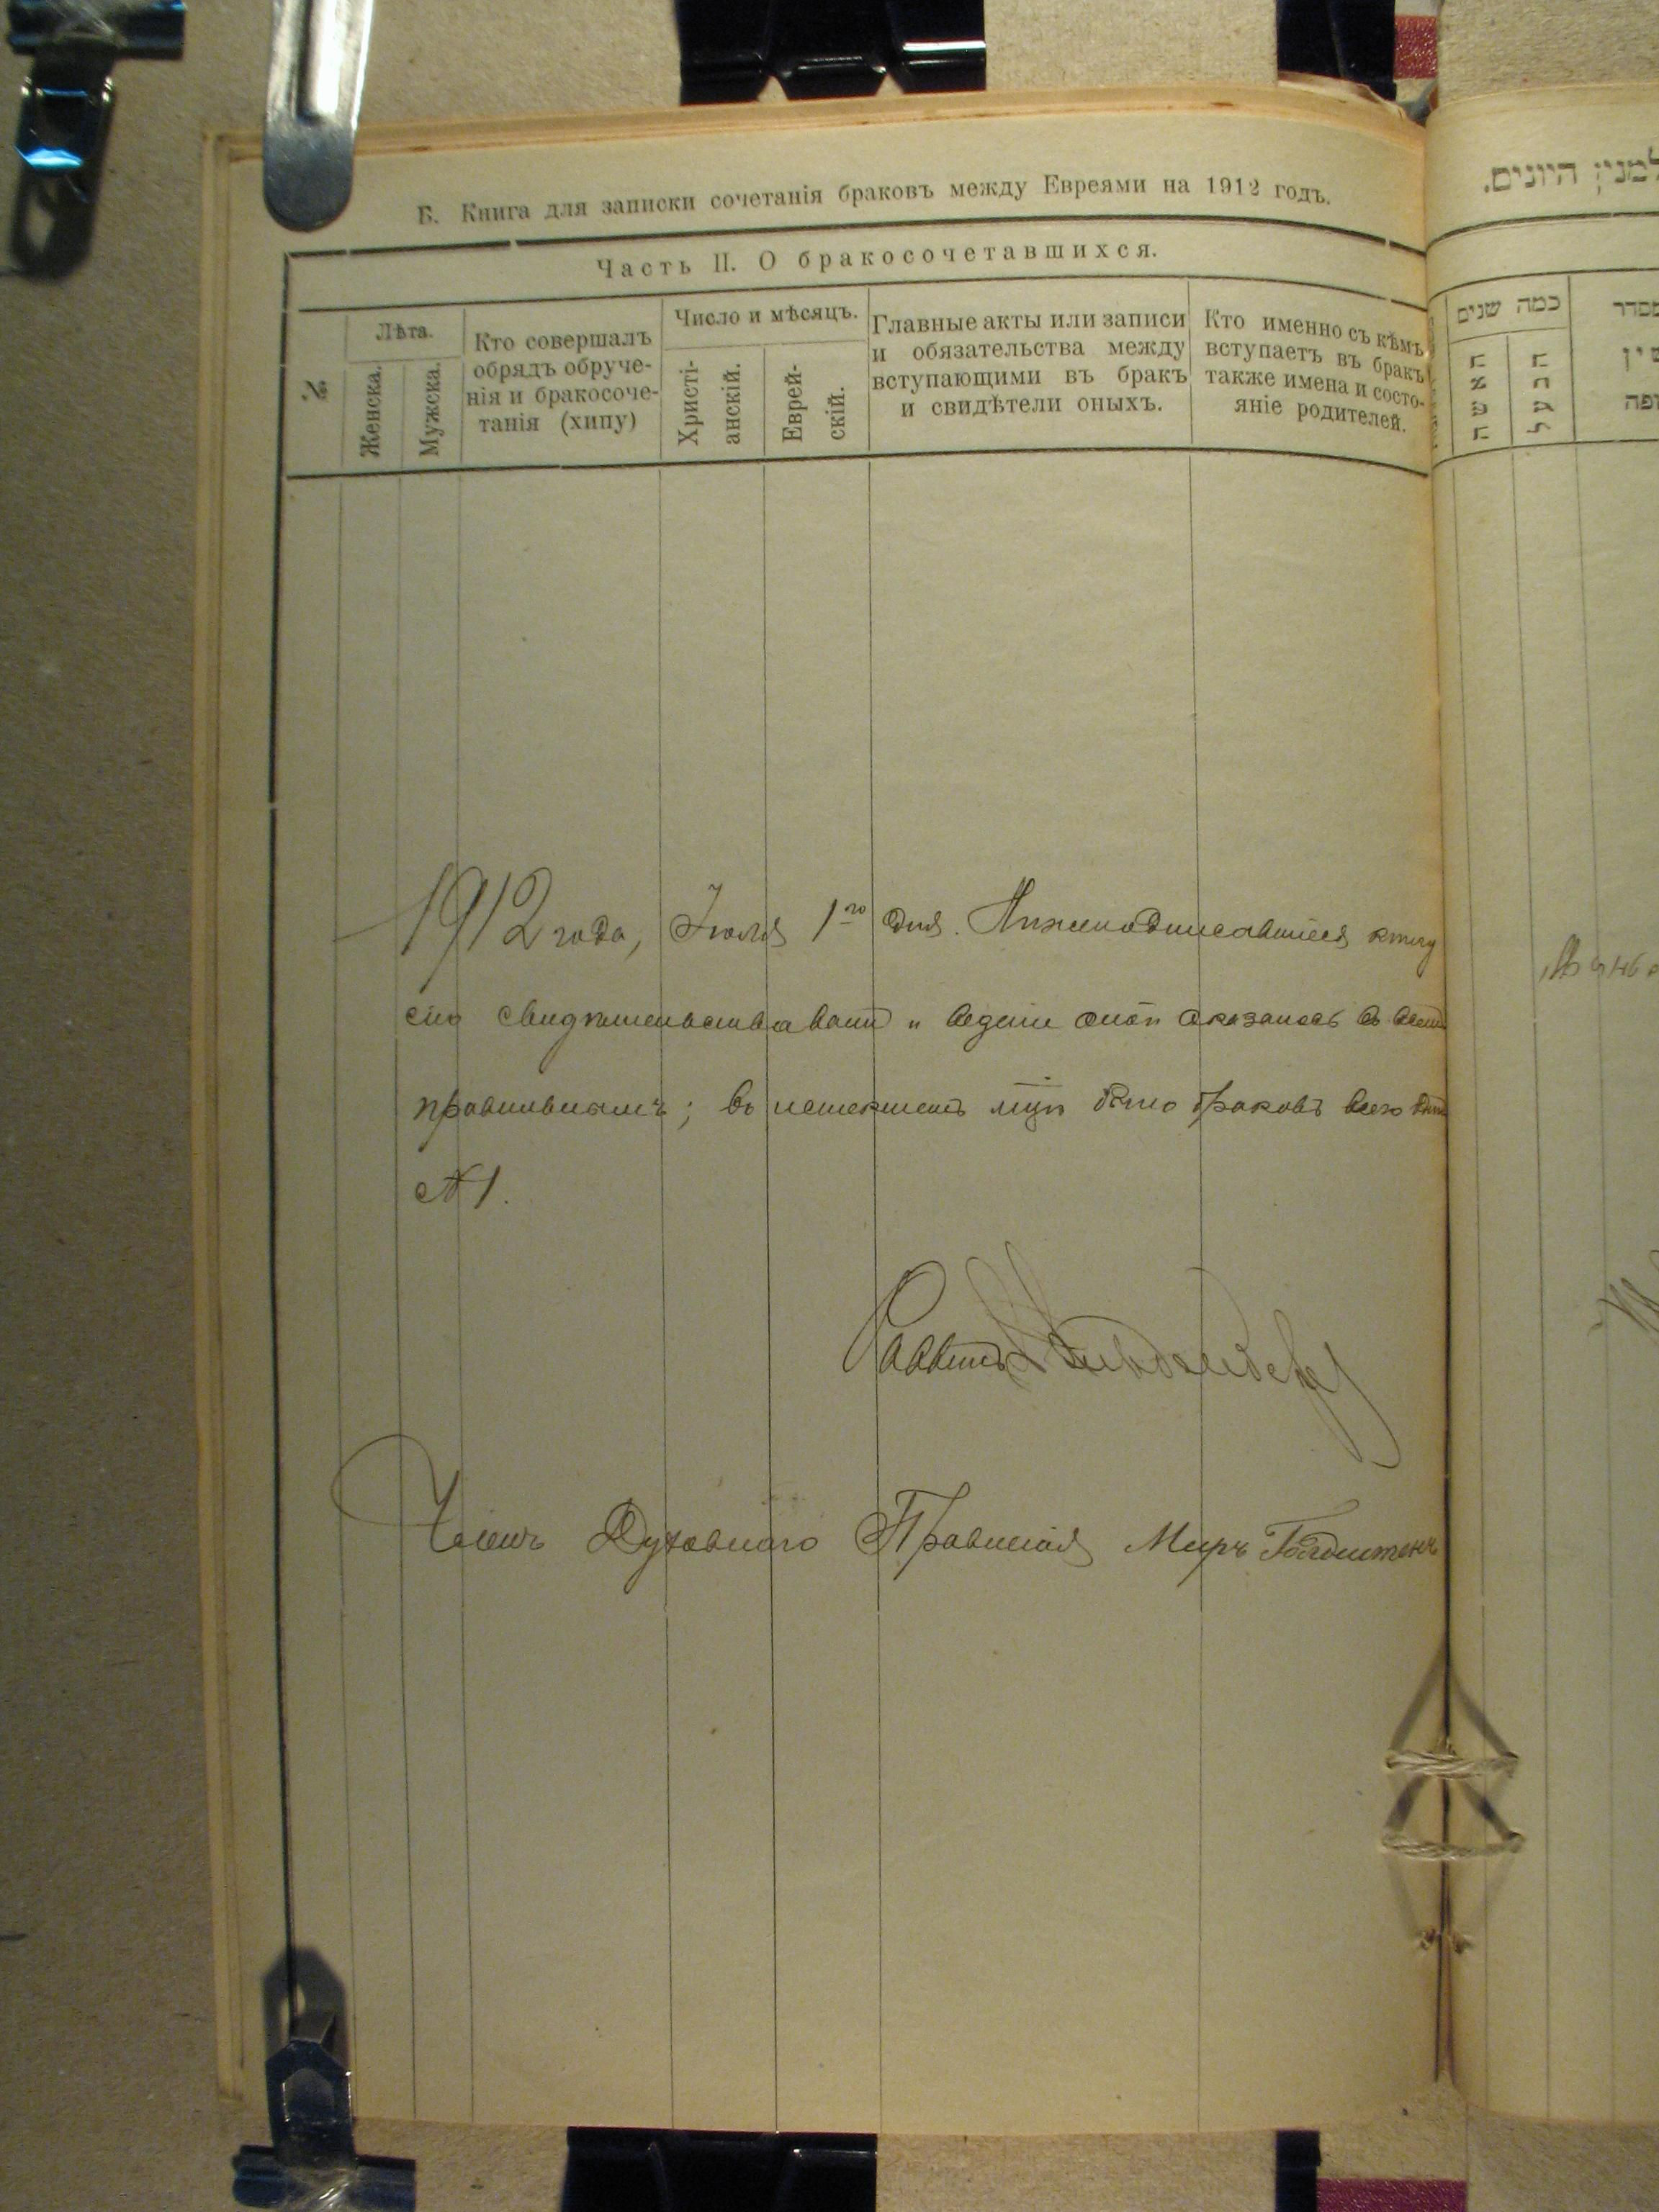 Б. Книга для записки сочетанія браковъ между Евреями на 1912 годъ.
Часть II. О бракосочетавшихся.
№
Лѣта.
Женска.
Мужска.
Кто совершалъ
обрядъ обруче-
нія и бракосоче-
танія (хипу)
Число и мѣсяцъ.
Христі-
анскій.
Еврей-
скій.
Главные акты или записи
и обязательства между
вступающими въ бракъ
и свидѣтели оныхъ.
Кто именно съ кѣмъ
вступаетъ въ бракъ
также имена и состо-
яніе родителей.
1912 года, Іюля 1го дня. Нижеподписавшіеся книгу
сію свидѣтельствовали и веденіе оной оказалось во всемъ
правильнымъ; въ истекшемъ было браковъ всего
№ 1.
Раввинъ
Членъ Духовнаго Правленія Меиръ Гольдштейнъ
למנין היונים.
כמה שנים
האשה
הבעל